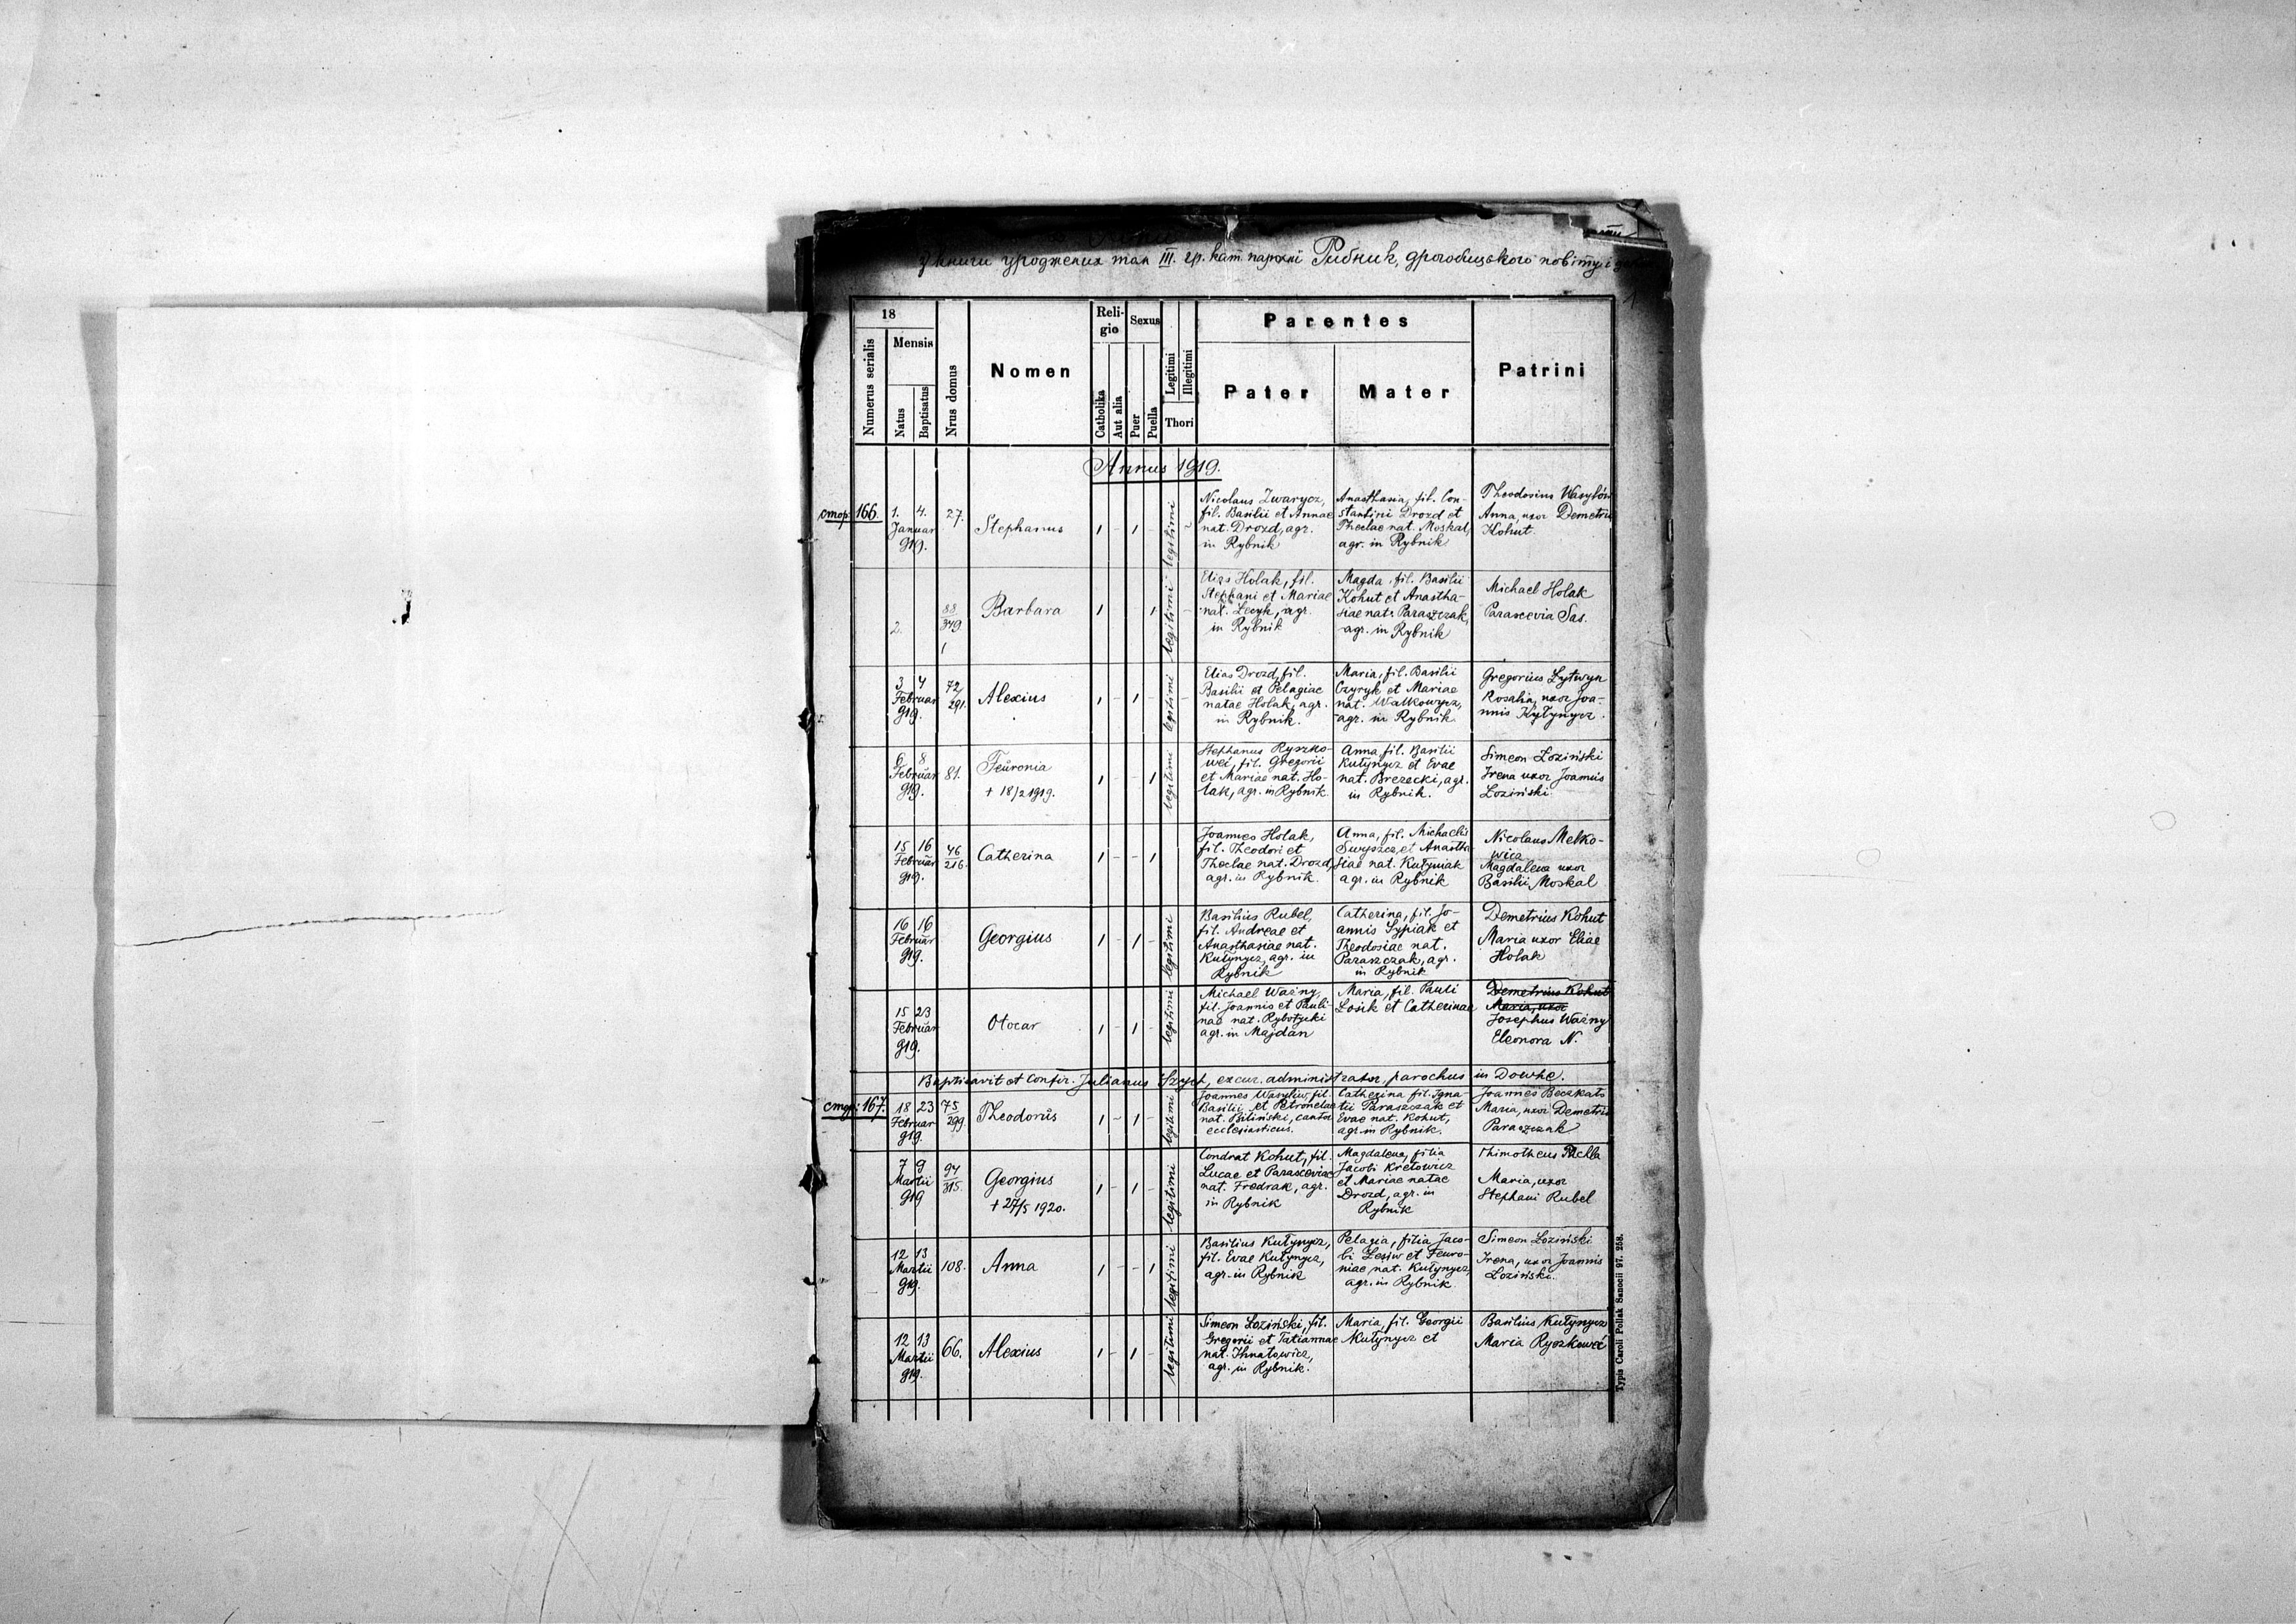 З книги уроджених там III. гр. кат. парохії Рибник, дрогобицького повіту і
1
18
Numerus serialis
Mensis
Natus
Baptisatus
Nrus domus
Nomen
Reli-
gio
Catholika
Aut alia
Sexus
Puer
Puella
Legitimi
Illegitimi
Thori
Parentes
Pater
Mater
Patrini
Annus 1919.
стор: 166.
1. 4.
Januar
919.
27.
Stephanus
1 - 1 -
legitimi
Nicolaus Zwarycz,
fil. Basilii et Annae
nat. Drozd, agr.
in Rybnik
Anasthasia, fil. Con-
stantini Drozd et
Theclae nat. Moskal,
agr. in Rybnik
Theodosius Wasylów
Anna, uxor Demetrii
Kohut
2.
88
349
1
Barbara
1 1
legitimi
Elias Holak, fil.
Stephani et Mariae
nat. Lecyk, agr.
in Rybnik
Magda, fil. Basilii
Kohut et Anastha-
siae nat. Paraszczak,
agr. in Rybnik
Michael Holak
Parascevia Sas.
3 4
Februar
919.
72/
291.
Alexius
1 - 1 -
legitimi
Elias Drozd, fil.
Basilii et Pelagiae
natae Holak, agr.
in Rybnik.
Maria, fil. Basilii
Czyryk et Mariae
nat. Walkowycz,
agr. in Rybnik
Gregorius Łytwyn
Rosalia, uxor Joa-
nnis Kytynycz.
6 8
Februar
919.
81.
Feuronia
+ 18/2 1919.
1 1
legitimi
Stephanus Ryszko-
weć, fil. Gregorii
et Mariae nat. Ho-
lak, agr. in Rybnik
Anna, fil. Basilii
Kutynycz et Evae
nat. Brezecki, agr.
in Rybnik.
Simeon Łoziński
Irena uxor Joannis
Łoziński
15 16
Februar
919.
46
216.
Catherina
1 - - 1
Joannes Holak,
fil. Theodori et
Theclae nat. Drozd,
agr. in Rybnik.
Anna, fil. Michaelis
Swyszcz, et Anastha-
siae nat. Kutyniak
agr. in Rybnik
Nicolaus Melko-
wicz
Magdalena uxor
Basilii Moskal
16 16
Februar
919.
Georgius
1 - 1 -
legitimi
Basilius Rubel,
fil. Andreae et
Anasthasiae nat.
Kutynycz, agr. in
Rybnik
Catherina, fil. Jo-
annis Sypiak et
Theodosiae nat.
Paraszczak, agr.
in Rybnik
Demetrius Kohut
Maria uxor Eliae
Holak
15 23
Februar
919.
Otocar
1 - 1 -
legitimi
Michael Ważny,
fil. Joannis et Pauli-
nae nat. Rybotycki
agr. in Majdan
Maria, fil. Pauli
Losik et Catherinae
Demetrius Kohut
Maria, uxor
Josephus Ważny
Eleonora N.
Baptisavit et Confir. Julianus Szych, excur. administrator, parochus in Dowhe.
стор: 167.
18 23
Februar
919.
75
299.
Theodorus
1 - 1 -
legitimi
Joannes Wasyliw, fil.
Basilii et Petronelae
nat. Biliński, cantor
ecclesiasticus.
Catherina fil. Igna-
tii Paraszczak et
Evae nat. Kohut,
agr. in Rybnik.
Joannes Beczkało
Maria, uxor Demetrii
Paraszczak
7 9
Martii
919
94
315.
Georgius
+ 27/5 1920.
1 - 1 -
legitimi
Condrat Kohut, fil.
Lucae et Parasceviae
nat. Fredrak, agr.
in Rybnik
Magdalena, filia
Jacobi Kretowicz
et Mariae natae
Drozd, agr. in
Rybnik
Thimotheus
Maria, uxor
Stephani Rubel
12 13
Martii
919.
108.
Anna
1 - - 1
legitimi
Basilius Kutynycz,
fil. Evae Kutynycz,
agr. in Rybnik
Pelagia, filia Jaco-
bi Lesiw et Feuro-
niae, nat. Kutynycz,
agr. in Rybnik
Simeon Łoziński
Irena, uxor Joannis
Łoziński.
12 13
Martii
919.
66.
Alexius
1 - 1 -
legitimi
Simeon Łoziński, fil.
Gregorii et Tatiannae
nat. Ihnatowicz,
agr. in Rybnik.
Maria, fil. Georgii
Kutynycz et
Basilius Kutynycz
Maria Ryszkoweć
Typis Caroli Pollak Sanocii 97. 258.